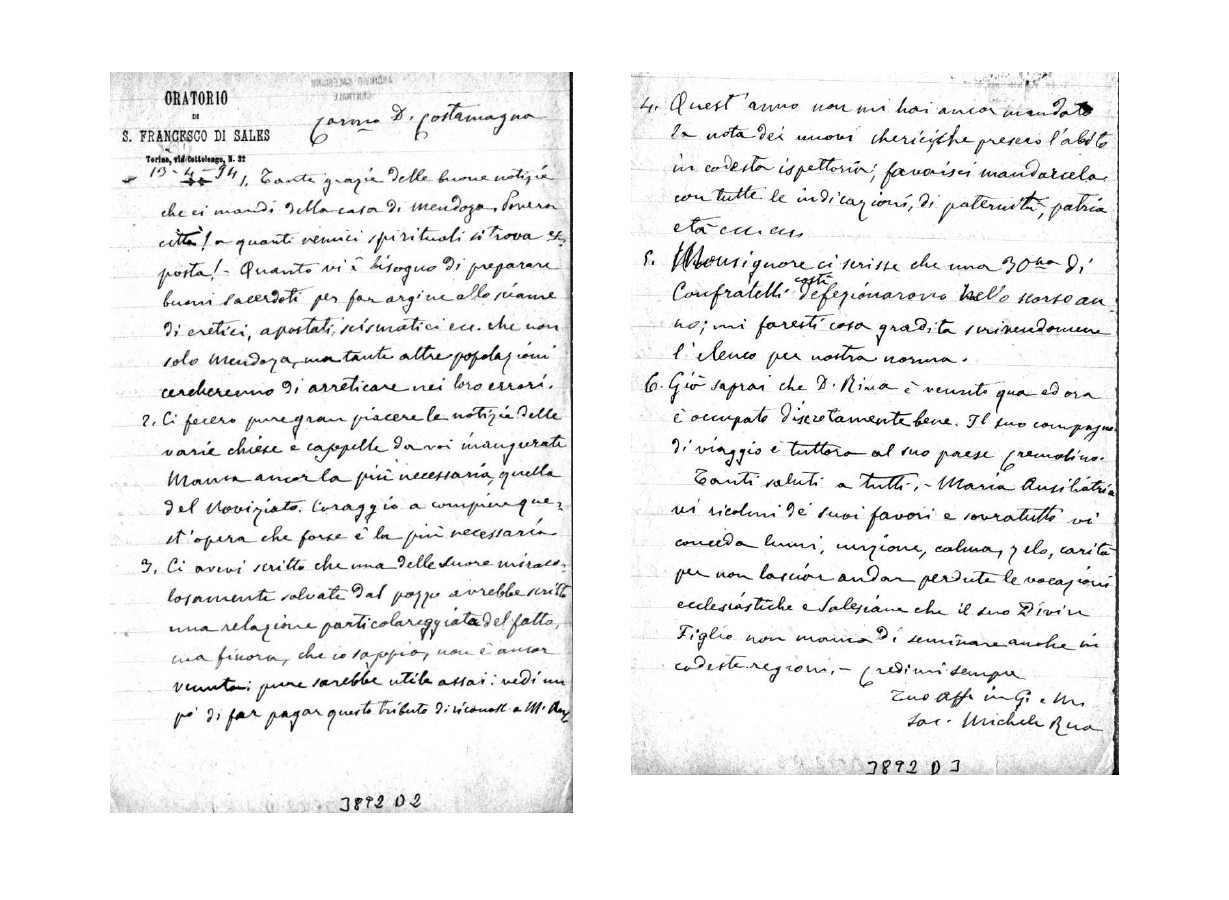 ORATORIO
DI
S. FRANCESCO DI SALES
Torino, via Cottolengo, N. 32
Carmo D. Costamagna
13-4-94
1. Tante grazie delle buone notizie
che ci mandi della casa di Mendoza. Povera
città! a quanti nemici spirituali si trova es,
posta! - Quanto vi è bisogno di preparare
buoni sacerdoti per far argine allo sciame
di eretici, apostati, scismatici ecc. che non
solo Mendoza, ma tante altre popolazioni
cercheranno di arreticare nei loro errori.
2. Ci fecero pure gran piacere le notizie delle
varie chiese e cappelle da voi inaugurate
Manca ancor la più necessaria, quella
del Noviziato. Coraggio a compiere que,
st'opera che forse è la più necessaria
3. Ci avevi scritto che una delle Suore miraco,
losamente salvate dal pozzo avrebbe scritto
una relazione particolareggiata del fatto,
ma finora, che io sappia, non è ancor
venuta; pure sarebbe utile assai: vedi un
po' di far pagar questo tributo di riconosc. a M. Aus
3892 D 2
4. Quest'anno non mi hai ancor mandato
la nota dei nuovi chierici che presero l'abito
in codesta ispettoria; favorisci mandarcela
con tutte le indicazioni, di paternità, patria
età ecc ecc
5. Monsignore ci scrisse che una 30na di
Confratelli costì defezionarono nello scorso an
no; mi faresti cosa gradita scrivendomene
l'elenco per nostra norma.
6. Già saprai che D. Riva è venuto qua ed ora
è occupato discretamente bene. Il suo compagno
di viaggio è tuttora al suo paese Cremolino.
Tanti saluti a tutti. - Maria Ausiliatrice
vi ricolmi de' suoi favori e sovratutto vi
conceda lumi, unzione, calma, zelo, carità
per non lasciar andar perdute le vocazioni
ecclesiastiche e Salesiane che il suo Divin
Figlio non manca di seminare anche in
codeste regioni. - Credimi sempre
Tuo Aff. in G. e M.
Sac. Michele Rua
3892 D 3